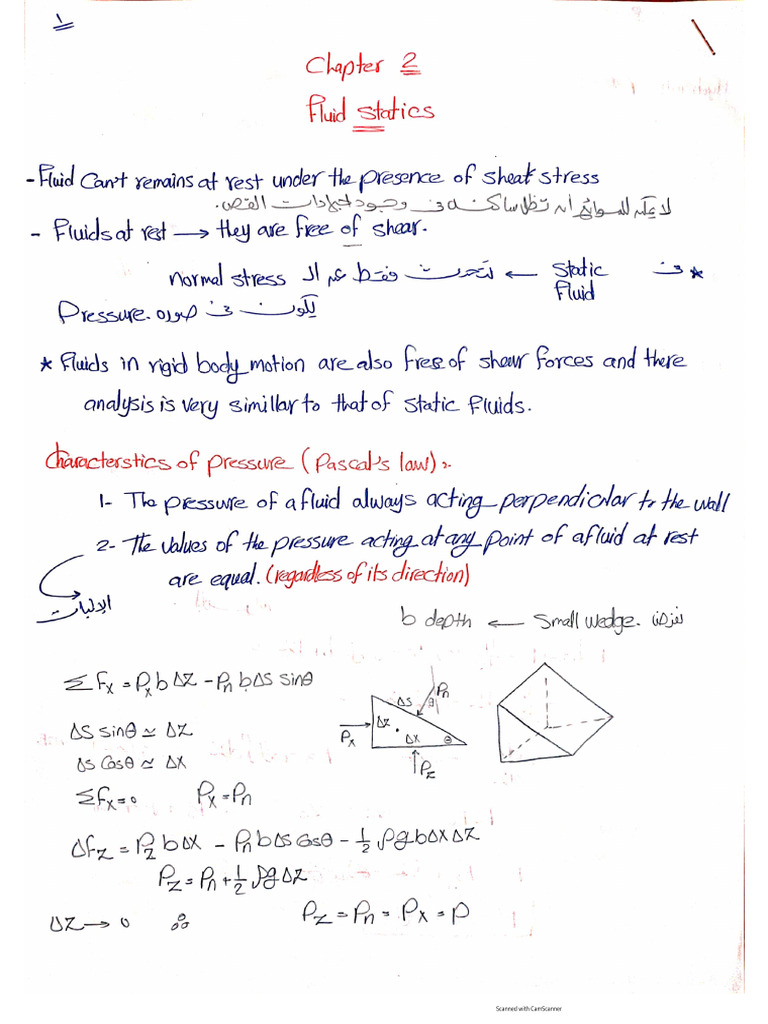 ١
Chapter 2
Fluid Statics
- Fluid Can't remains at rest under the presence of shear stress
لا يمكن للسوائل أن تظل ساكنه فى وجود اجهادات القص.
- Fluids at rest → they are free of shear.
* فى Static Fluid ← نتحدث فقط عن الـ normal stress
يكون فى صوره Pressure.
* Fluids in rigid body motion are also free of shear forces and there
analysis is very simillar to that of static fluids.
Characterstics of pressure (Pascal's law):-
1- The pressure of a fluid always acting perpendicular to the wall
2- The values of the pressure acting at any point of a fluid at rest
are equal. (regardless of its direction)
الإثبات
نفرض Small wedge. ← b depth
ΣFx = Px b ΔZ - Pn b ΔS sinθ
ΔS sinθ ≃ ΔZ
ΔS Cosθ ≃ ΔX
ΣFx = 0 Px = Pn
ΔS
Pn
θ
ΔZ
ΔX
θ
Px
Pz
ΔFz = Pz b ΔX - Pn b ΔS Cosθ - 1/2 ρg b ΔX ΔZ
Pz = Pn + 1/2 ρg ΔZ
ΔZ → 0 ∴ Pz = Pn = Px = P
Scanned with CamScanner